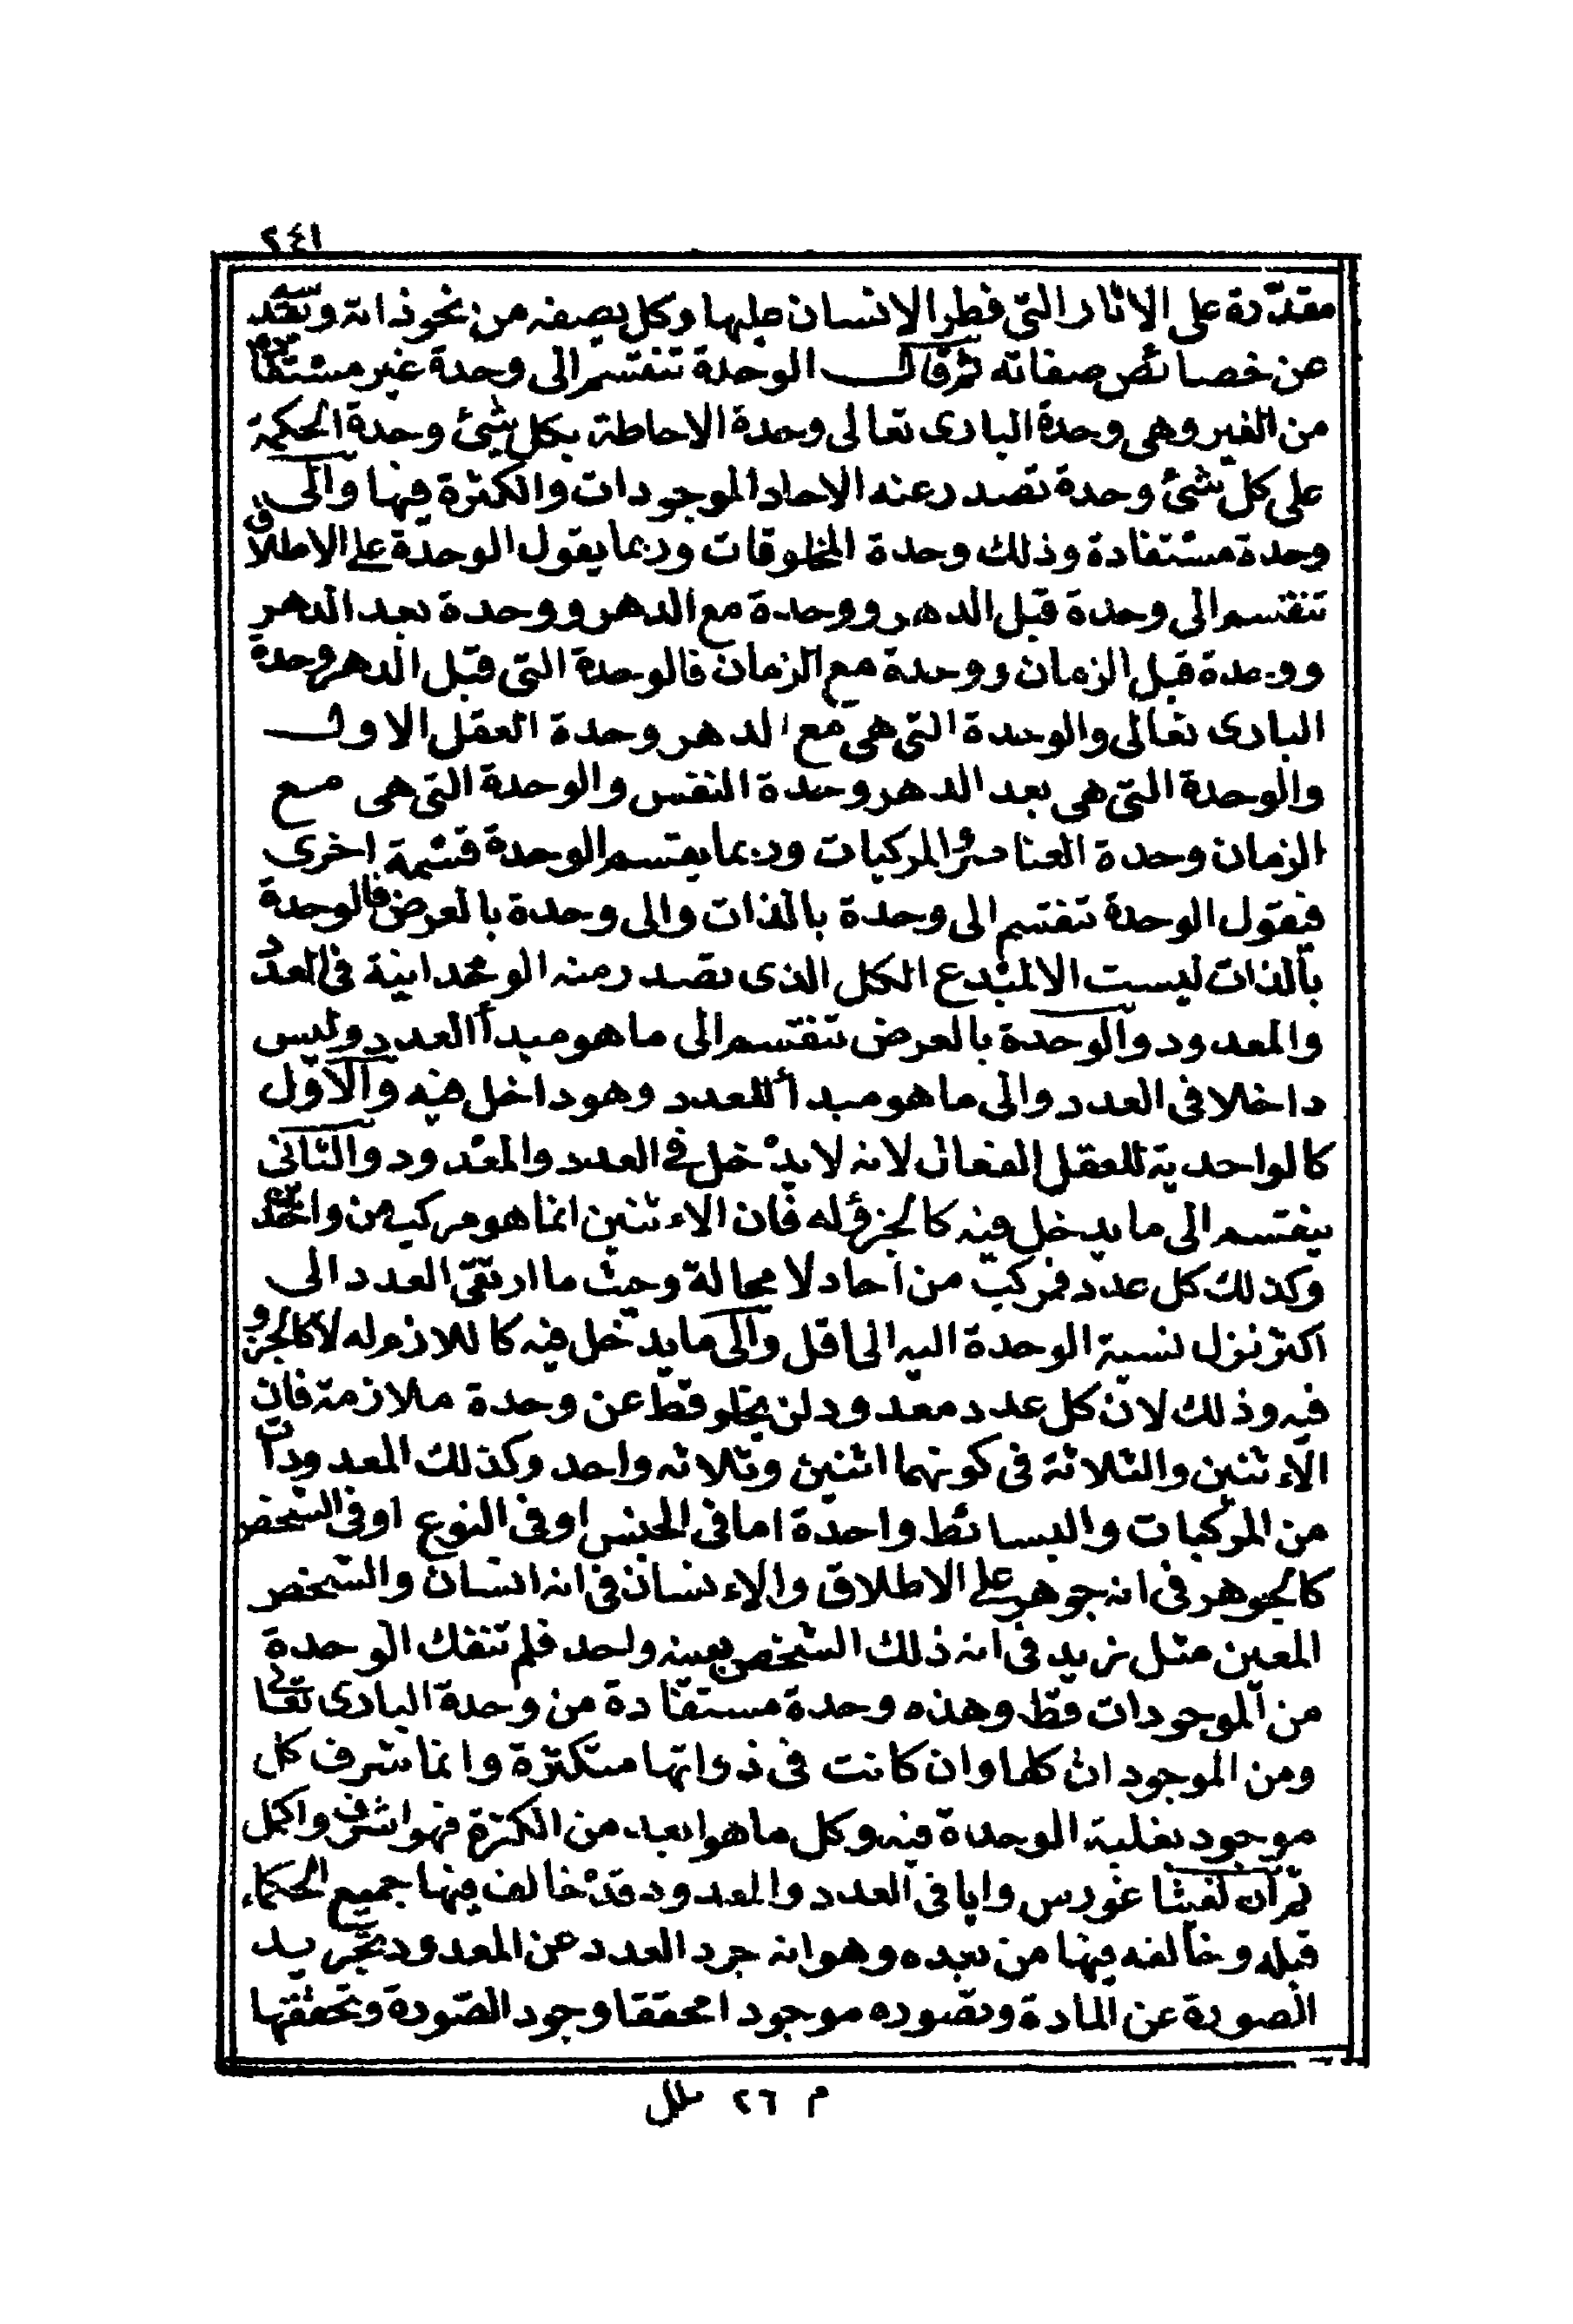 ٢٤١
مقدرة على الاثار التى فطر الانسان عليها وكل يصفه من نحو ذاته ويقدسه
عن خصائص صفاته ثم قال الوحدة تنقسم الى وحدة غير مستفادة
من الغير وهى وحدة البارى تعالى وحدة الاحاطة بكل شئ وحدة الحكمة
على كل شئ وحدة تصدر عنه الاحاد الموجودات والكثرة فيها والى
وحدة مستفادة وذلك وحدة المخلوقات وربما يقول الوحدة على الاطلاق
تنقسم الى وحدة قبل الدهر ووحدة مع الدهر ووحدة بعد الدهر
ووحدة قبل الزمان ووحدة مع الزمان فالوحدة التى قبل الدهر وحدة
البارى تعالى والوحدة التى هى مع الدهر وحدة العقل الاول
والوحدة التى هى بعد الدهر وحدة النفس والوحدة التى هى مع
الزمان وحدة العناصر والمركبات وربما يقسم الوحدة قسمة اخرى
فيقول الوحدة تنقسم الى وحدة بالذات والى وحدة بالعرض فالوحدة
بالذات ليست الا لمبدع الكل الذى تصدر منه الوحدانية فى العدد
والمعدود والوحدة بالعرض تنقسم الى ما هو مبدأ العدد وليس
داخلا فى العدد والى ما هو مبدأ للعدد وهو داخل فيه والاوّل
كالواحدية للعقل الفعال لانه لا يدخل فى العدد والمعدود والثانى
ينقسم الى ما يدخل فيه كالجزؤله فان الاءثنين انما هو مركب من واحدين
وكذلك كل عدد فمركب من آحاد لا محالة وحيث ما ارتقى العدد الى
اكثر نزل نسبة الوحدة اليه الى اقل والى ما يدخل فيه كاللازم له لا كالجزو
فيه وذلك لان كل عدد معدود لن يخلو قط عن وحدة ملازمة فان
الاءثنين والثلاثة فى كونهما اثنين وثلاثه واحد وكذلك المعدودات
من المركبات والبسائط واحدة اما فى الجنس او فى النوع او فى الشخص
كالجوهر فى انه جوهر على الاطلاق والاءنسان فى انه انسان والشخص
المعين مثل زيد فى انه ذلك الشخص بعينه واحد فلم تنفك الوحدة
من الموجودات قط وهذه وحدة مستفادة من وحدة البارى تعالى
ومن الموجودات كلها وان كانت فى ذواتها متكثرة وانما شرف كل
موجود بغلبة الوحدة فيه وكل ما هو ابعد من الكثرة فهو اشرف واكمل
ثم ان لفيثاغورس رايا فى العدد والمعدود قد خالف فيها جميع الحكماء
قبله وخالفه فيها من بعده وهو انه جرد العدد عن المعدود تجريد
الصورة عن المادة وتصوره موجودا محققا وجود الصّورة وتحققها
م ٢٦ ملل